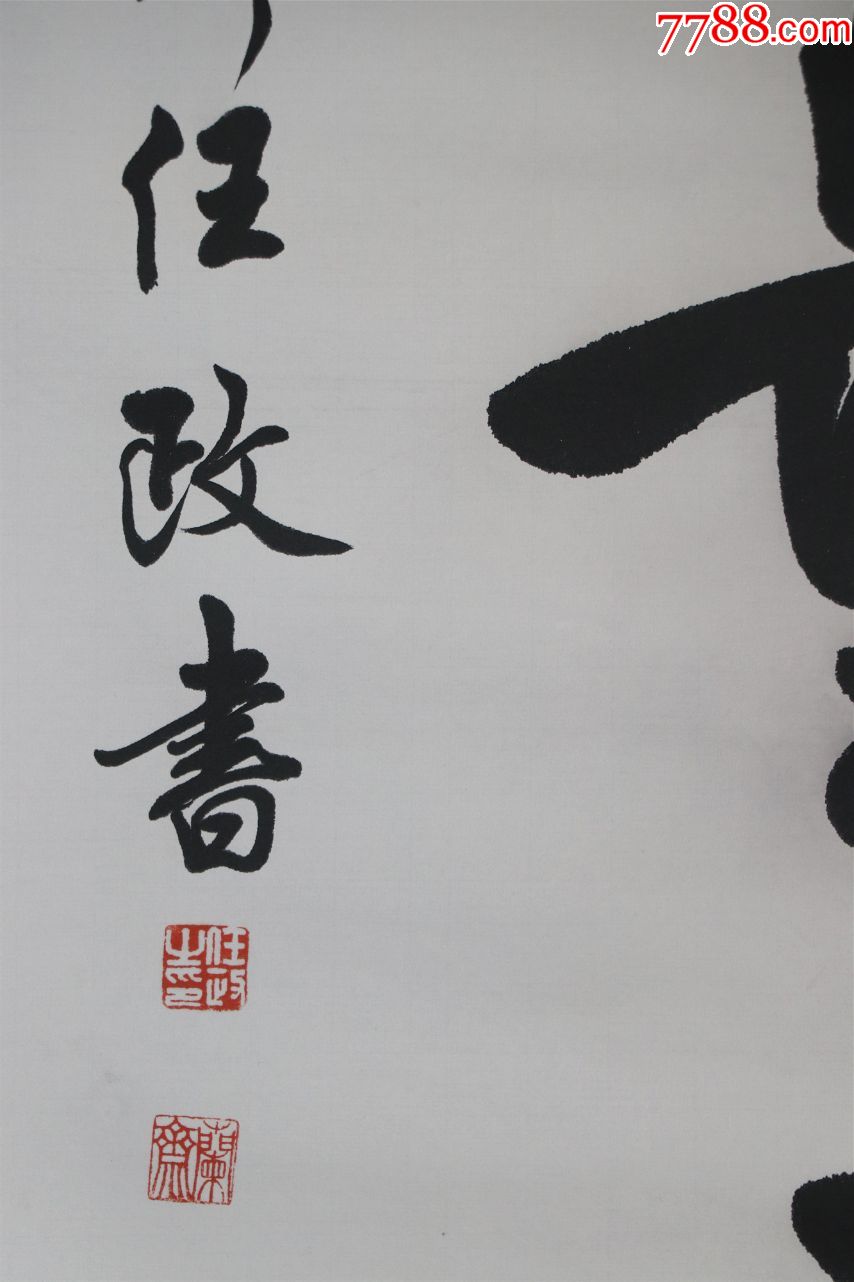 7788.com
任政書
任政之印
蘭齋